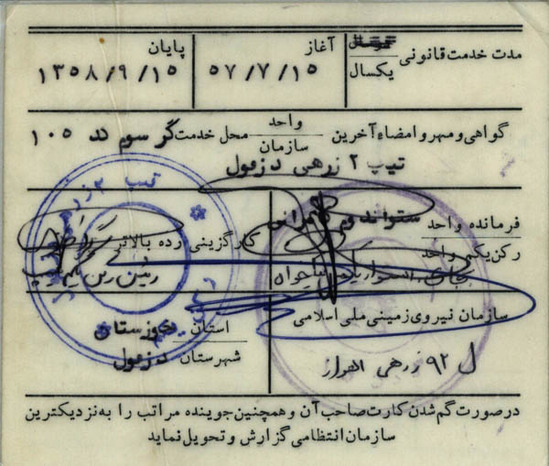 مدت خدمت قانونی یکسال
آغاز
۵۷/۷/۱۵
پایان
۱۳۵۸/۹/۱۵
گواهی و مهر و امضاء آخرین واحد سازمان محل خدمت گر سوم دد ۱۰۵
تیپ ۲ زرهی دزفول
فرمانده واحد
رکن یکم واحد
ستواندوم
کارگزینی رده بالاتر
سازمان نیروی زمینی ملی اسلامی
ل ۹۲ زرهی اهواز
استان خوزستان
شهرستان دزفول
در صورت گم شدن کارت صاحب آن و همچنین جوینده مراتب را به نزدیکترین
سازمان انتظامی گزارش و تحویل نماید